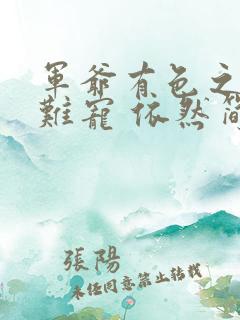 軍爺有色之
難寵 依然 簡
張陽
未經同意禁止轉載